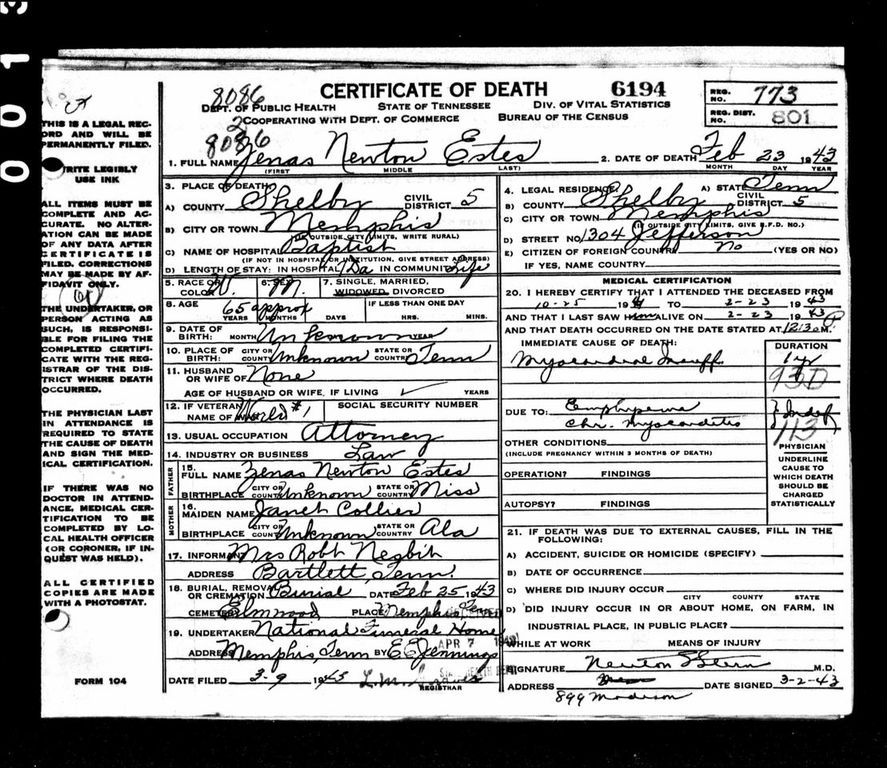 0013
THIS IS A LEGAL REC-
ORD AND WILL BE
PERMANENTLY FILED.
WRITE LEGIBLY
USE INK
ALL ITEMS MUST BE
COMPLETE AND AC-
CURATE. NO ALTER-
ATION CAN BE MADE
OF ANY DATA AFTER
CERTIFICATE IS
FILED. CORRECTIONS
MAY BE MADE BY AF-
FIDAVIT ONLY.
THE UNDERTAKER, OR
PERSON ACTING AS
SUCH, IS RESPONSI-
BLE FOR FILING THE
COMPLETED CERTIFI-
CATE WITH THE REG-
ISTRAR OF THE DIS-
TRICT WHERE DEATH
OCCURRED.
THE PHYSICIAN LAST
IN ATTENDANCE IS
REQUIRED TO STATE
THE CAUSE OF DEATH
AND SIGN THE MED-
ICAL CERTIFICATION.
IF THERE WAS NO
DOCTOR IN ATTEND-
ANCE, MEDICAL CER-
TIFICATION TO BE
COMPLETED BY LO-
CAL HEALTH OFFICER
(OR CORONER, IF IN-
QUEST WAS HELD).
ALL CERTIFIED
COPIES ARE MADE
WITH A PHOTOSTAT.
FORM 104
8086 CERTIFICATE OF DEATH 6194
DEPT. OF PUBLIC HEALTH STATE OF TENNESSEE DIV. OF VITAL STATISTICS
2 COOPERATING WITH DEPT. OF COMMERCE BUREAU OF THE CENSUS
REG. NO. 773
REG. DIST. NO. 801
8086
1. FULL NAME Zenas Newton Estes 2. DATE OF DEATH Feb 23 1943
(FIRST) MIDDLE LAST) MONTH DAY YEAR
3. PLACE OF DEATH
A) COUNTY Shelby CIVIL DISTRICT 5
B) CITY OR TOWN Memphis
(IF OUTSIDE CITY LIMITS, WRITE RURAL)
C) NAME OF HOSPITAL Baptist
(IF NOT IN HOSPITAL OR INSTITUTION, GIVE STREET ADDRESS)
D) LENGTH OF STAY: IN HOSPITAL 1 Da IN COMMUNITY Life
4. LEGAL RESIDENCE: A) STATE Tenn
B) COUNTY Shelby CIVIL DISTRICT 5
C) CITY OR TOWN Memphis
(IF OUTSIDE CITY LIMITS, GIVE R.F.D. NO.)
D) STREET NO. 1304 Jefferson
E) CITIZEN OF FOREIGN COUNTRY No (YES OR NO)
IF YES, NAME COUNTRY
5. RACE OR COLOR W. 6. SEX M. 7. SINGLE, MARRIED, WIDOWED, DIVORCED
8. AGE 65 approx IF LESS THAN ONE DAY
YEARS MONTHS DAYS HRS. MINS.
9. DATE OF BIRTH: MONTH Unknown YEAR
10. PLACE OF BIRTH: CITY OR COUNTY Unknown STATE OR COUNTRY Tenn
11. HUSBAND OR WIFE OF None
AGE OF HUSBAND OR WIFE, IF LIVING YEARS
12. IF VETERAN NAME OF WAR World #1 SOCIAL SECURITY NUMBER
13. USUAL OCCUPATION Attorney
14. INDUSTRY OR BUSINESS Law
FATHER
15. FULL NAME Zenas Newton Estes
BIRTHPLACE CITY OR COUNTY Unknown STATE OR COUNTRY Miss
MOTHER
16. MAIDEN NAME Janet Collier
BIRTHPLACE CITY OR COUNTY Unknown STATE OR COUNTRY Ala
17. INFORMANT Mrs Robt Nesbit
ADDRESS Bartlett, Tenn.
18. BURIAL, REMOVAL OR CREMATION Burial DATE Feb 25 1943
CEMETERY Elmwood PLACE Memphis, Tenn
19. UNDERTAKER National Funeral Home
APR 7
ADDRESS Memphis, Tenn BY E C Jennings
DATE FILED 3-9 1943
REGISTRAR
MEDICAL CERTIFICATION
20. I HEREBY CERTIFY THAT I ATTENDED THE DECEASED FROM
10-25 19 TO 2-23 1943
AND THAT I LAST SAW Him ALIVE ON 2-23 1943
AND THAT DEATH OCCURRED ON THE DATE STATED AT 12:30 P M.
IMMEDIATE CAUSE OF DEATH: DURATION
Myocardial Insuff. 1 yr
93D
DUE TO: Emphysema
Chr. Myocarditis Indef
113
OTHER CONDITIONS
(INCLUDE PREGNANCY WITHIN 3 MONTHS OF DEATH)
PHYSICIAN
UNDERLINE
CAUSE TO
WHICH DEATH
SHOULD BE
CHARGED
STATISTICALLY
OPERATION? FINDINGS
AUTOPSY? FINDINGS
21. IF DEATH WAS DUE TO EXTERNAL CAUSES, FILL IN THE
FOLLOWING:
A) ACCIDENT, SUICIDE OR HOMICIDE (SPECIFY)
B) DATE OF OCCURRENCE
C) WHERE DID INJURY OCCUR
CITY COUNTY STATE
D) DID INJURY OCCUR IN OR ABOUT HOME, ON FARM, IN
INDUSTRIAL PLACE, IN PUBLIC PLACE?
WHILE AT WORK MEANS OF INJURY
SIGNATURE Newton S Stern M.D.
ADDRESS DATE SIGNED 3-2-43
899 Madison